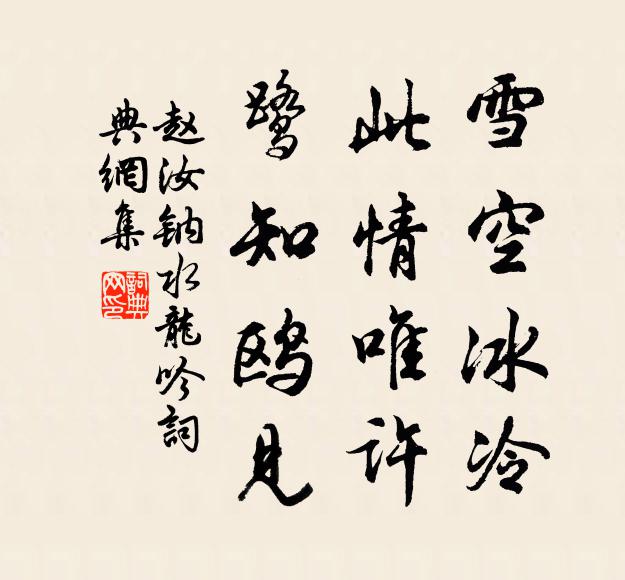 雪空冰冷
此情唯许
鹭知鸥见
赵汝钠水龍吟詞
典網集
詞典
网印